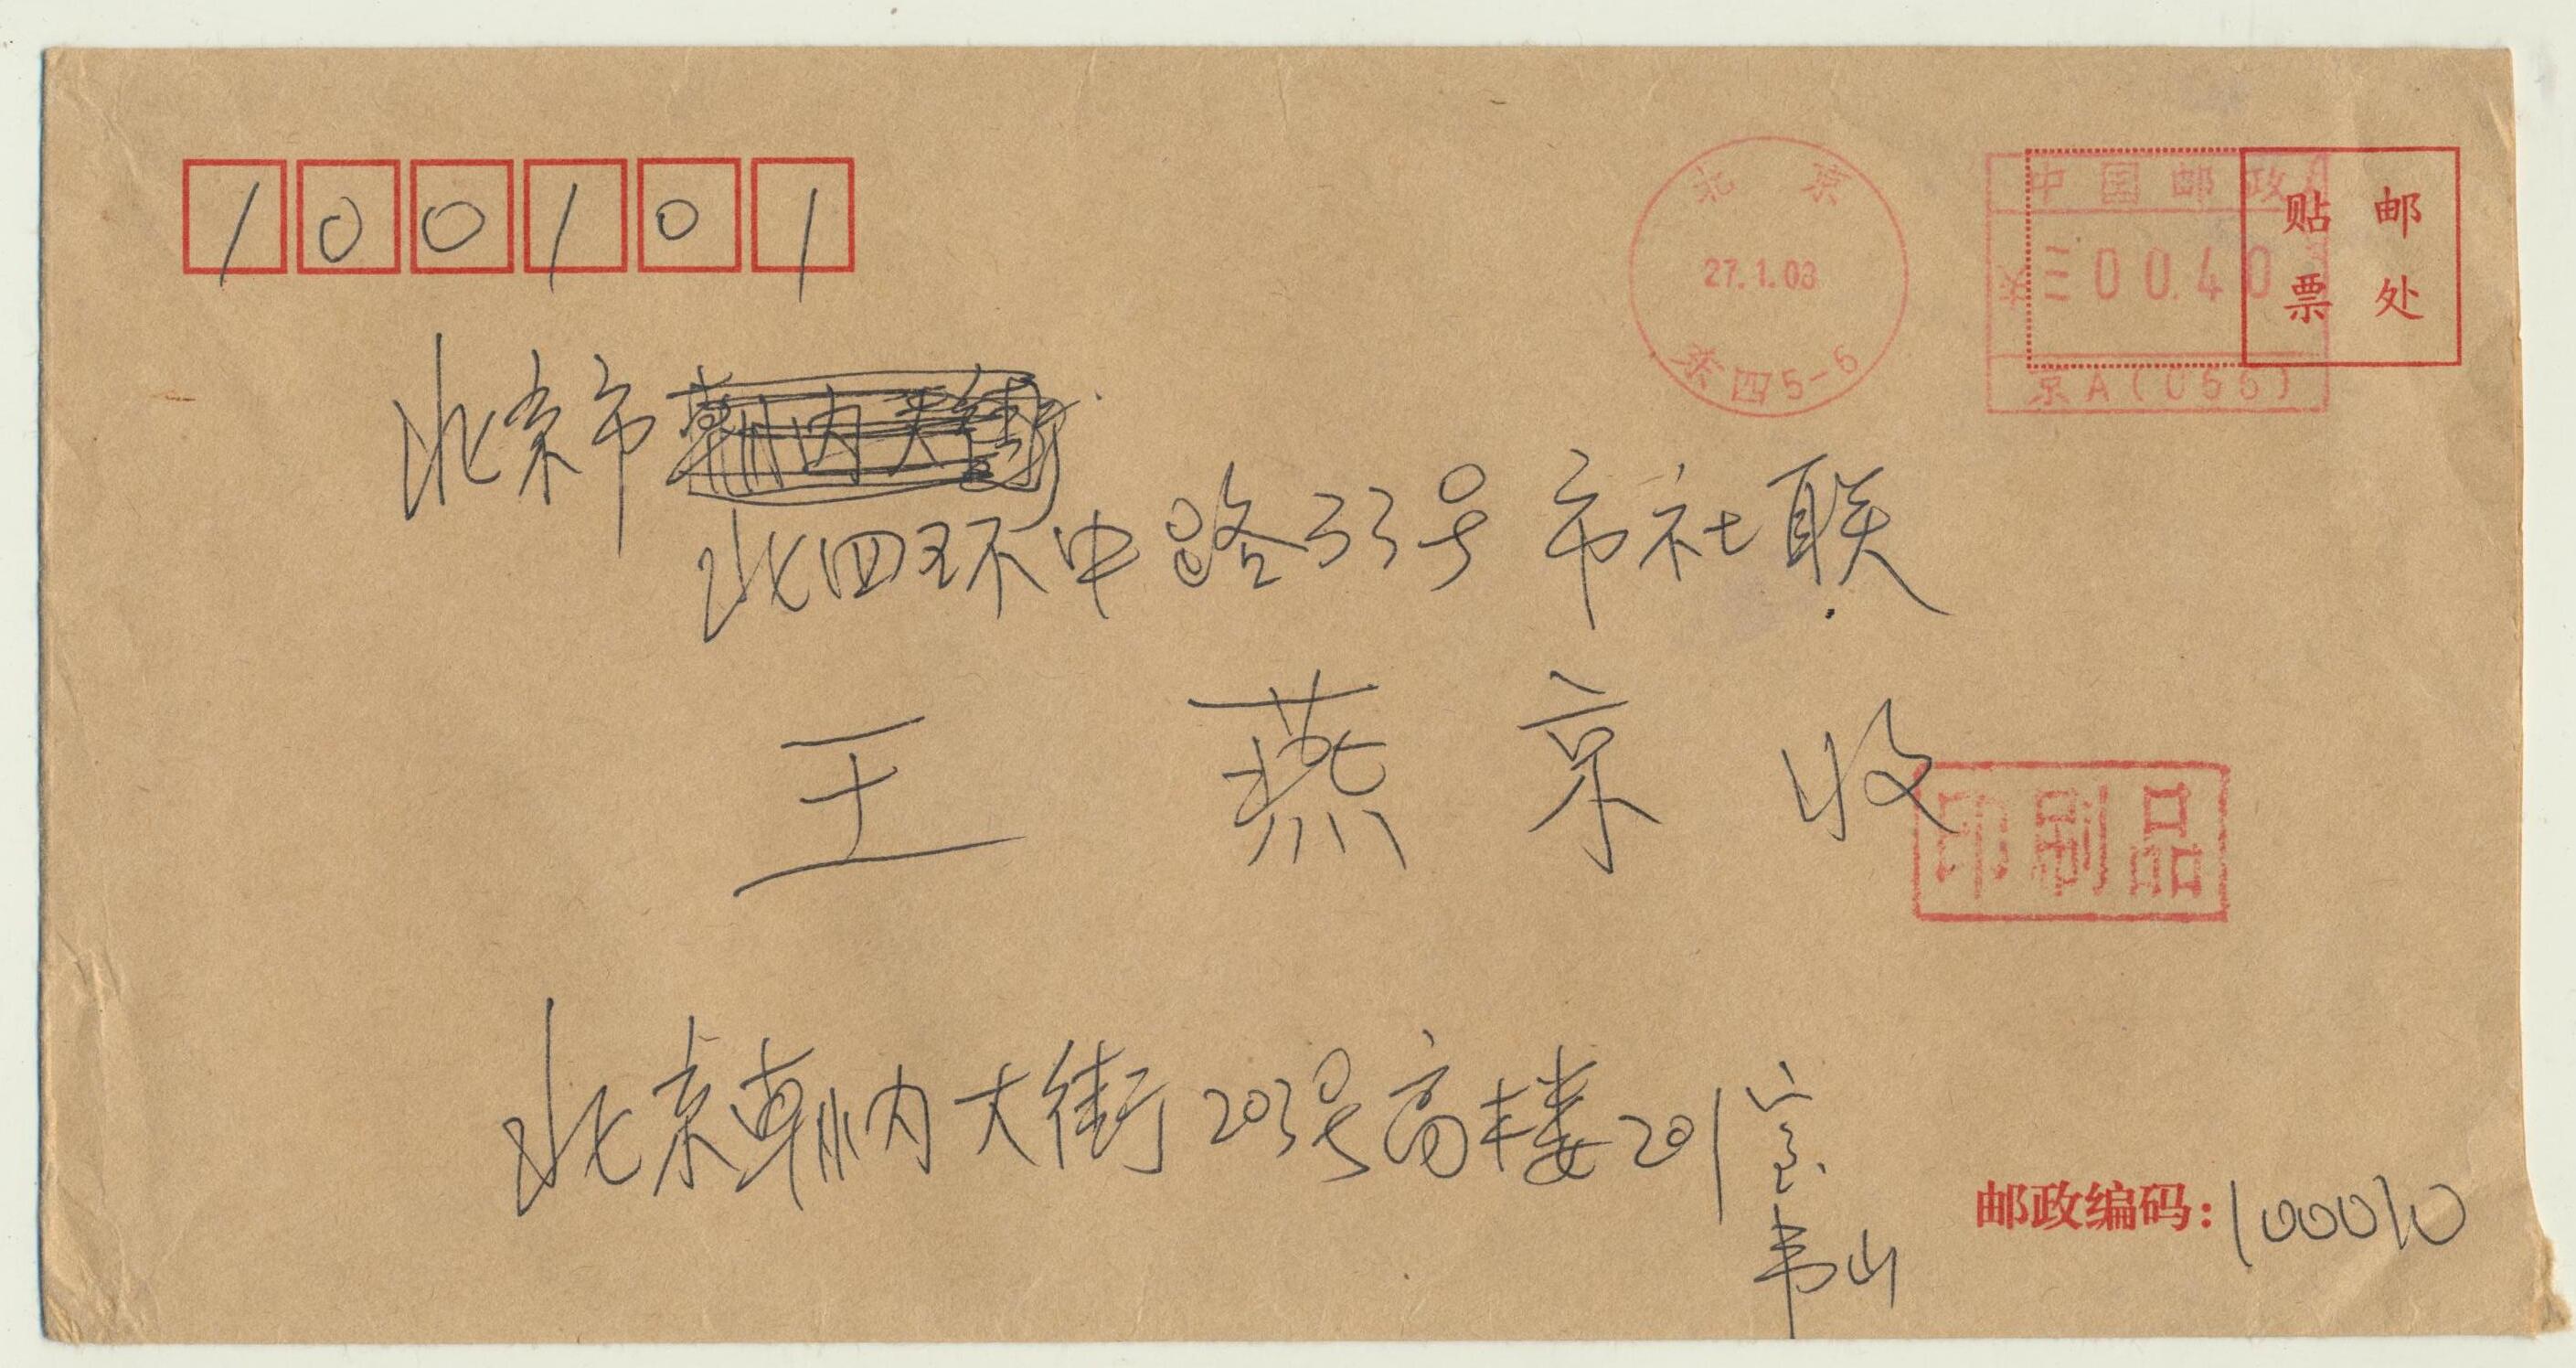 100101
北京
27.1.03
东四5-6
中国邮政
00.40
京A(055)
邮票
贴处
北京市朝内大街
北四环中路33号市社联
王燕京收
印刷品
北京朝内大街203号高楼201室
韦山
邮政编码:100010